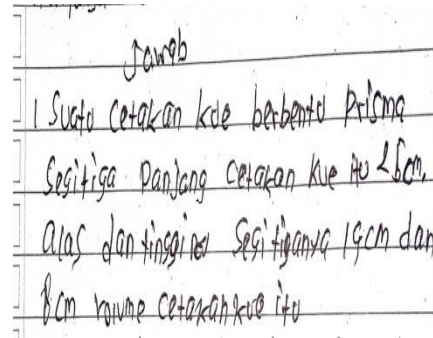 Jawab
1 Suatu cetakan kue berbentu Prisma
Segitiga Panjang cetakan kue itu 25cm.
alas dan tingginoa Segitiganya 14cm dan
8cm volume cetakan kue itu